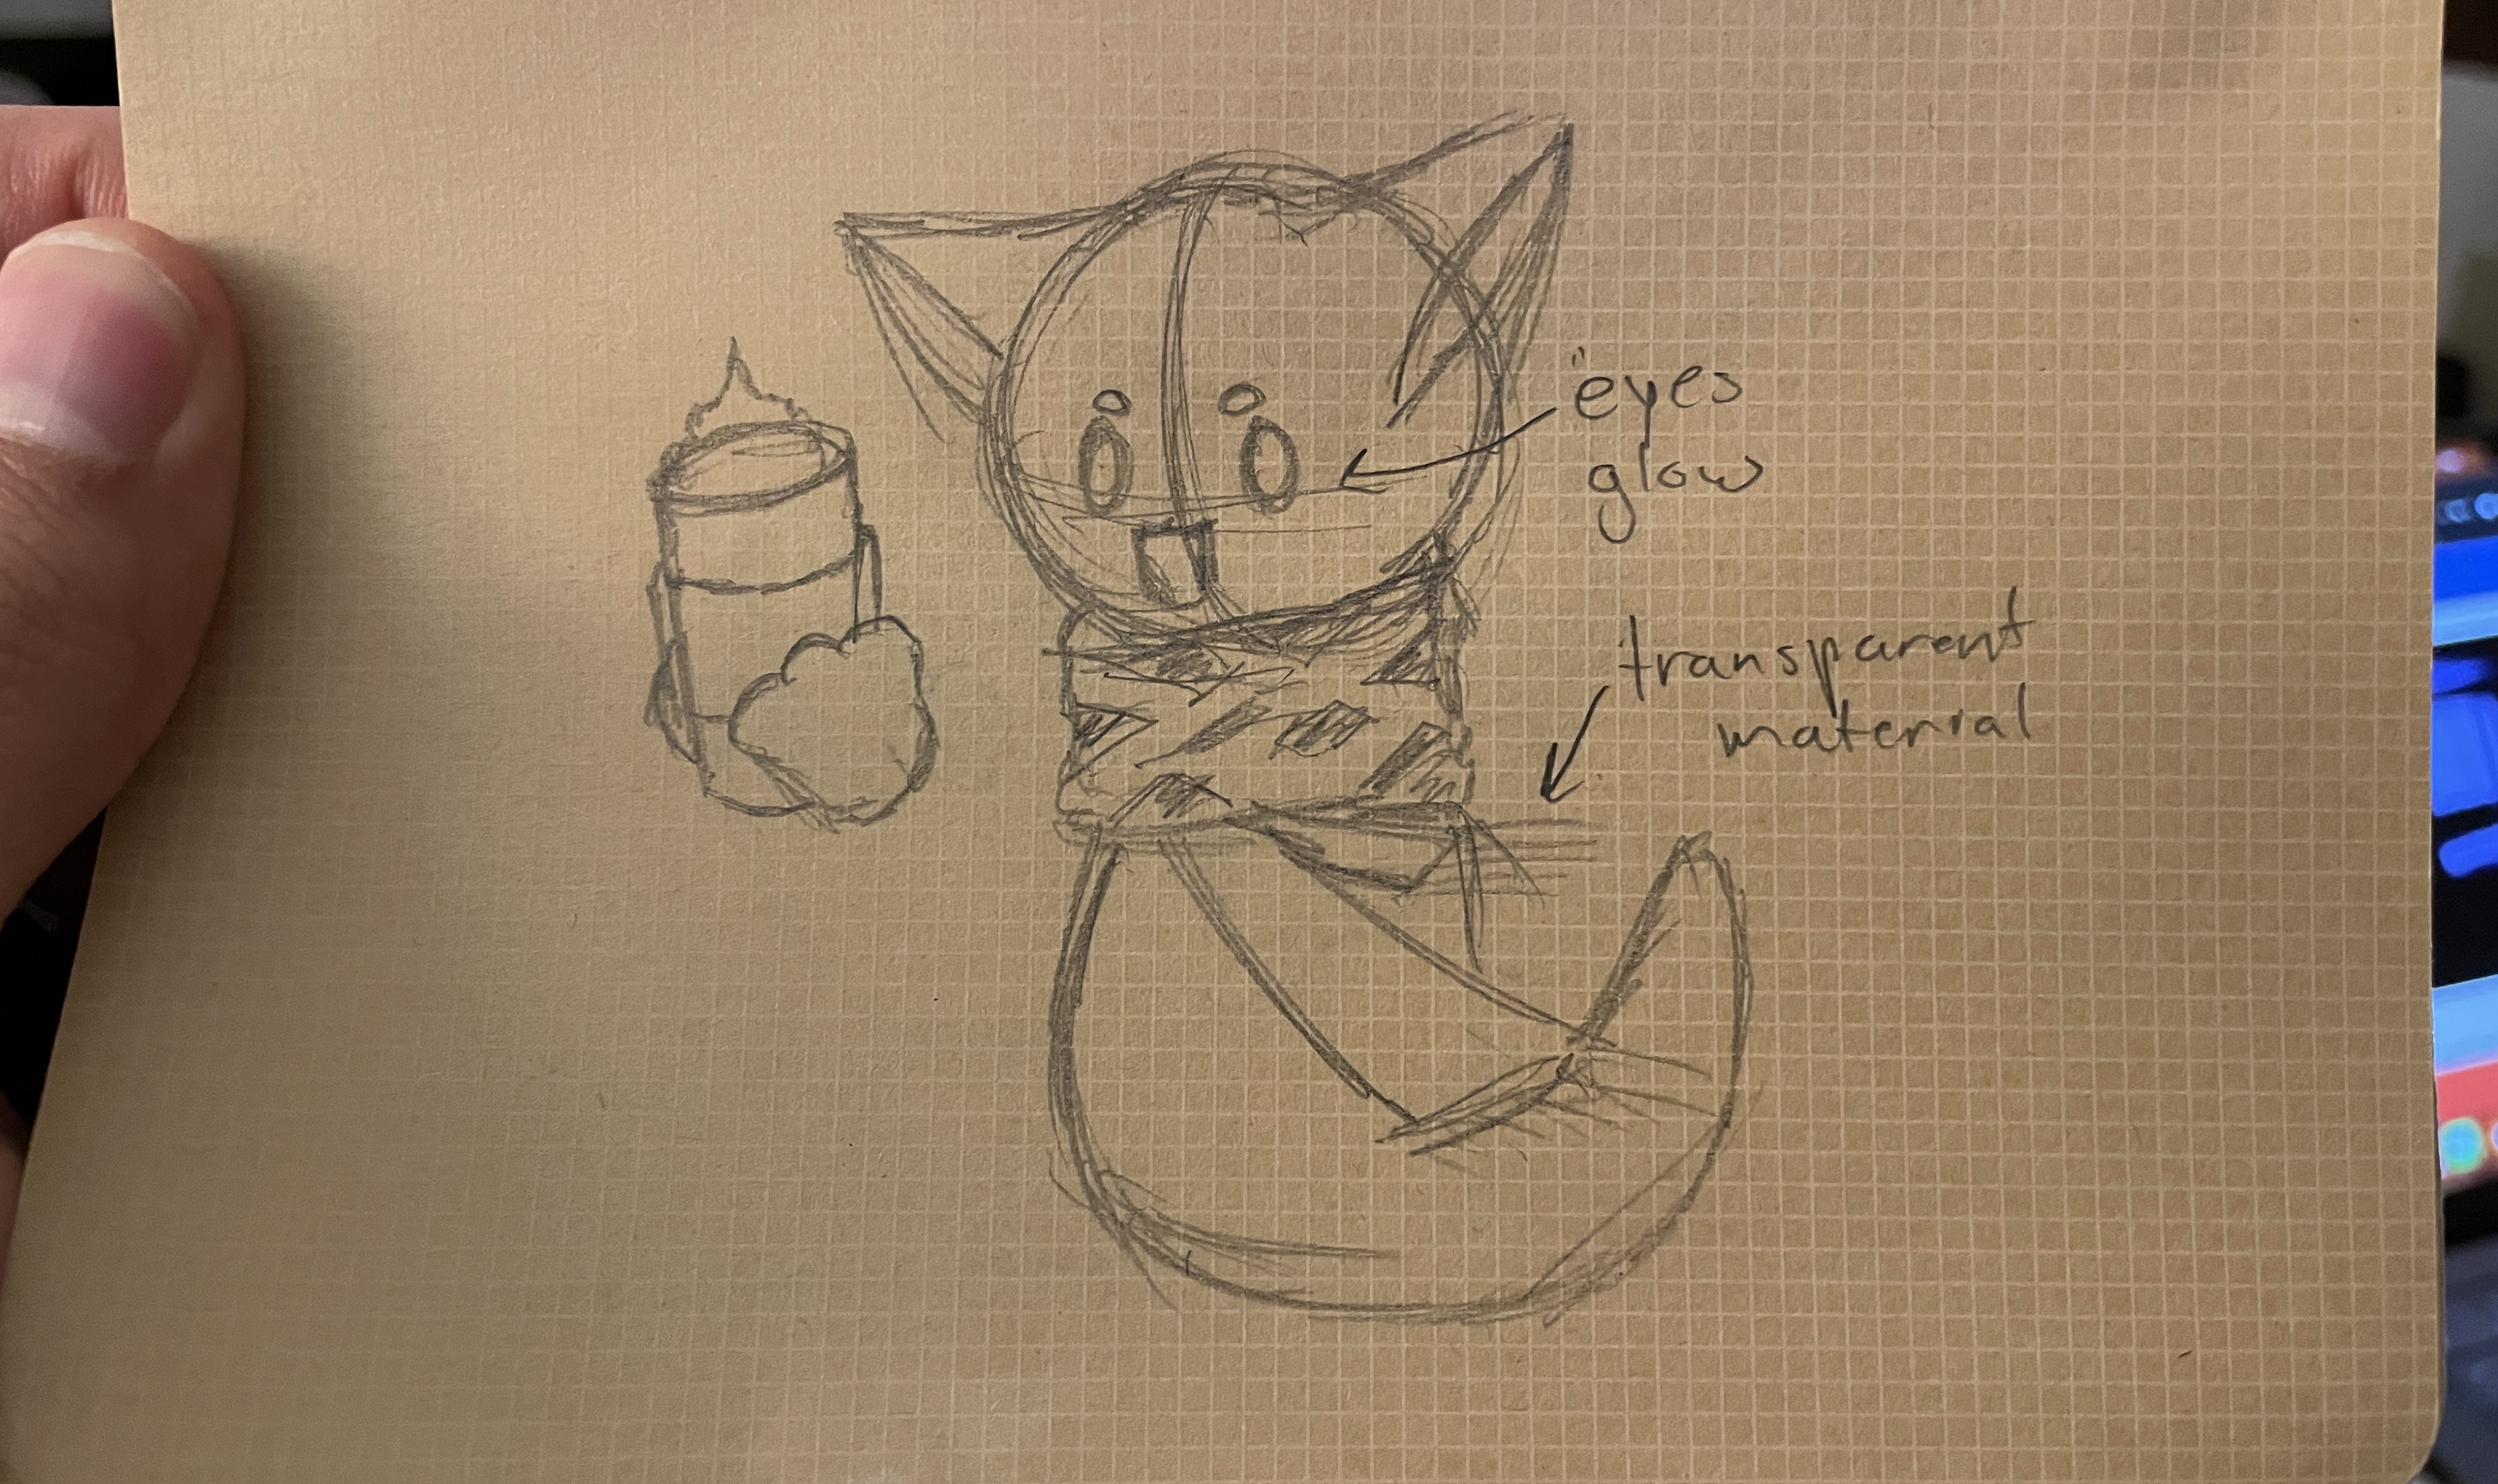 eyes
glow
transparent
material